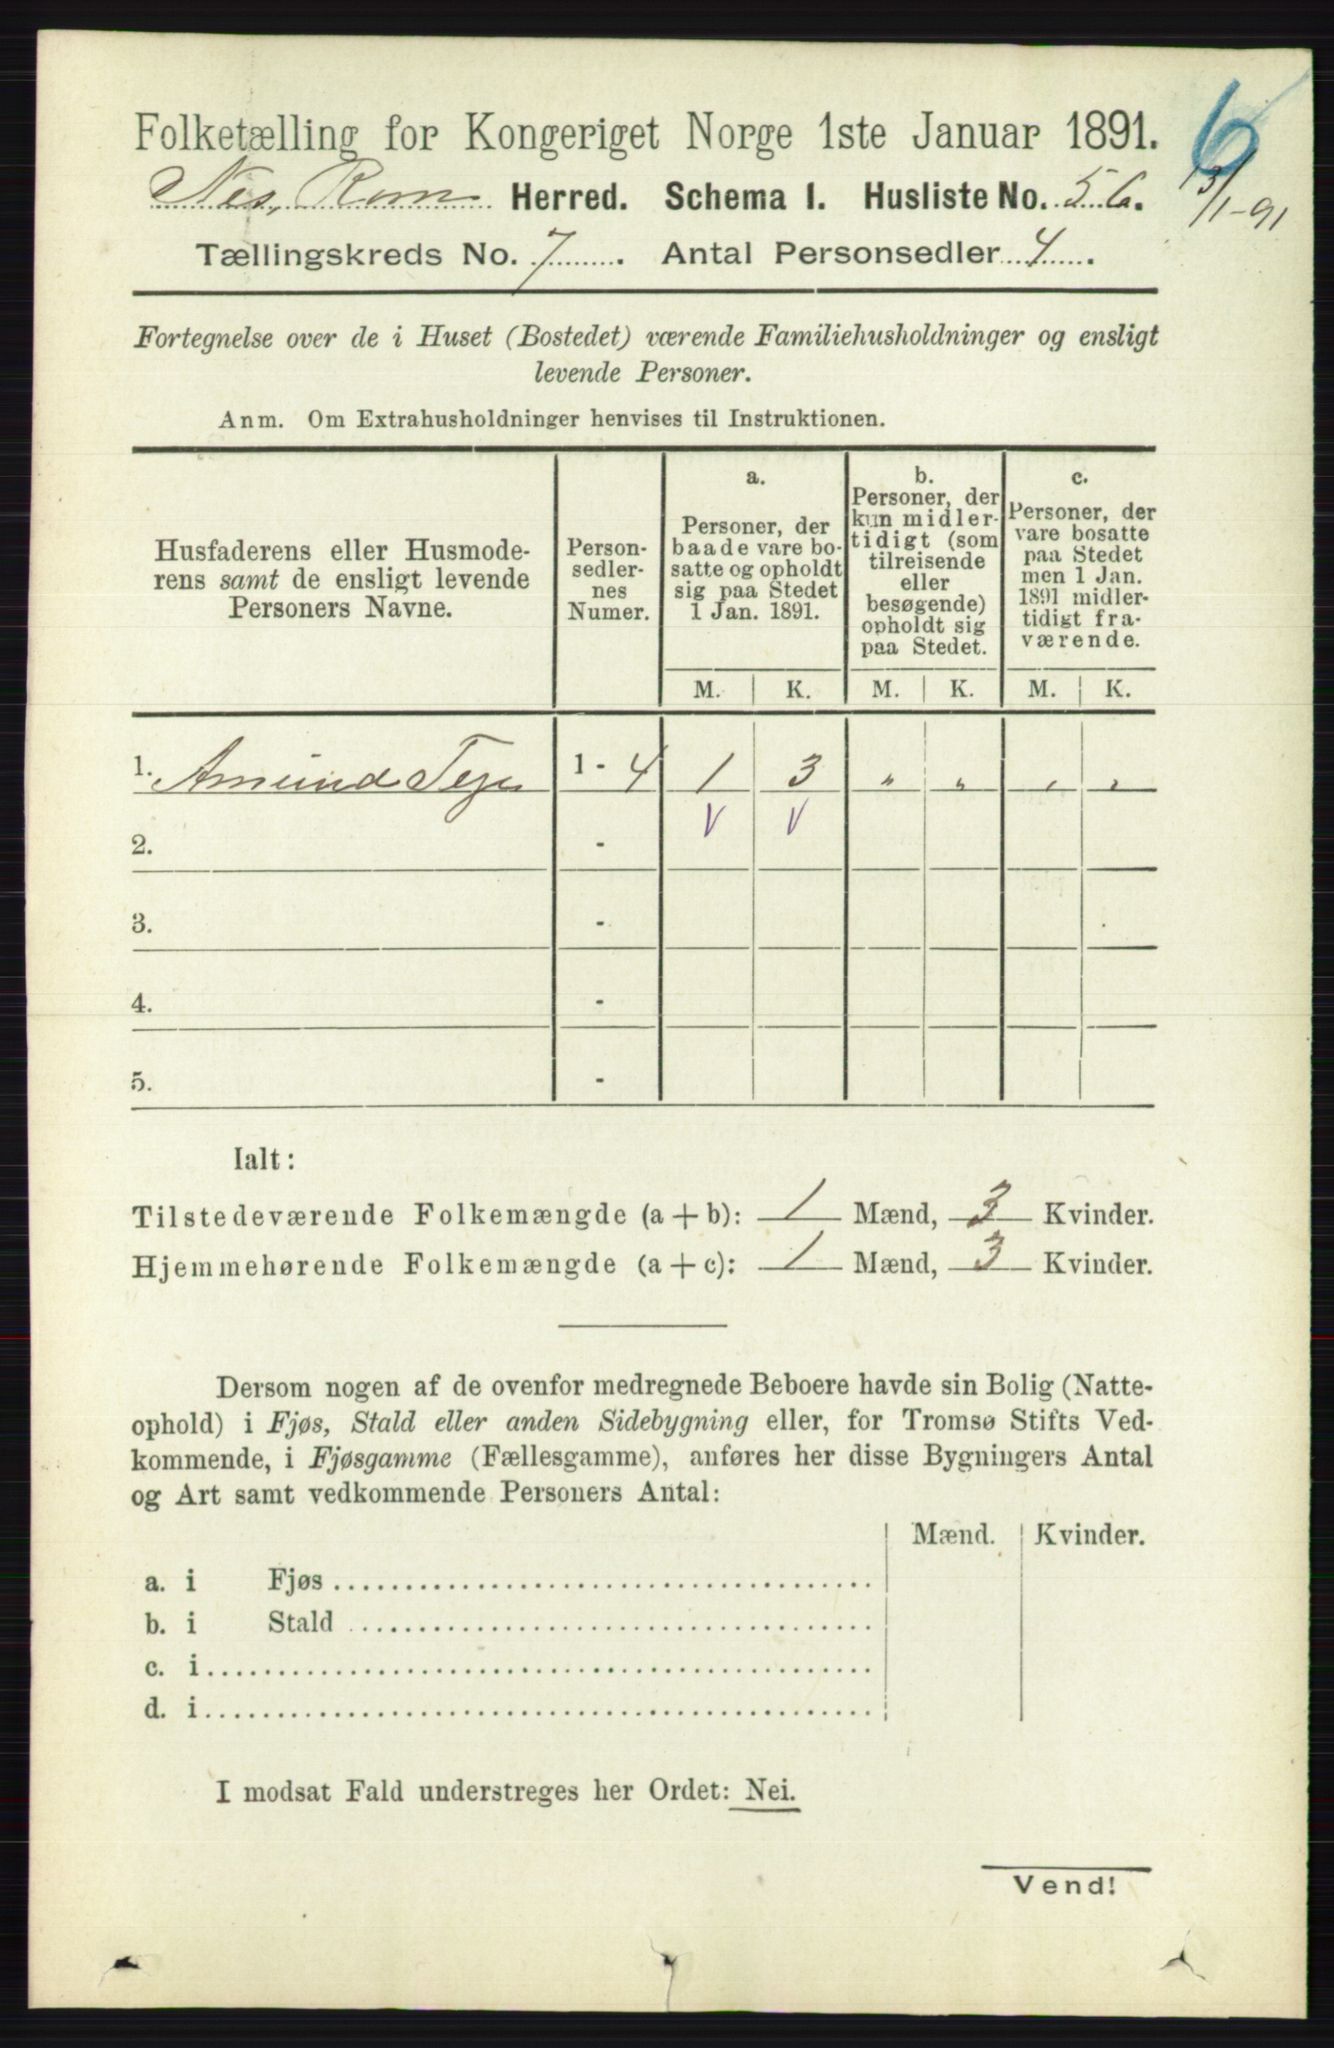 Folketælling for Kongeriget Norge 1ste Januar 1891.
6
Nes, Rom Herred. Schema I. Husliste No. 56.
13/1-91
Tællingskreds No. 7. Antal Personsedler 4.
Fortegnelse over de i Huset (Bostedet) værende Familiehusholdninger og ensligt
levende Personer.
Anm. Om Extrahusholdninger henvises til Instruktionen.
Husfaderens eller Husmode-
rens samt de ensligt levende
Personers Navne.
Person-
sedler-
nes
Numer.
a.
Personer, der
baade vare bo-
satte og opholdt
sig paa Stedet
1 Jan. 1891.
b.
Personer, der
kun midler-
tidigt (som
tilreisende
eller
besøgende)
opholdt sig
paa Stedet.
c.
Personer, der
vare bosatte
paa Stedet
men 1 Jan.
1891 midler-
tidigt fra-
værende.
M. K. M. K. M. K.
1. Amund 1 - 4 1 3 " " , ,
V V
2. -
3. -
4. -
5. -
Ialt:
Tilstedeværende Folkemængde (a + b): 1 Mænd, 3 Kvinder.
Hjemmehørende Folkemængde (a + c): 1 Mænd, 3 Kvinder.
Dersom nogen af de ovenfor medregnede Beboere havde sin Bolig (Natte-
ophold) i Fjøs, Stald eller anden Sidebygning eller, for Tromsø Stifts Ved-
kommende, i Fjøsgamme (Fællesgamme), anføres her disse Bygningers Antal
og Art samt vedkommende Personers Antal:
Mænd. Kvinder.
a. i Fjøs
b. i Stald
c. i
d. i
I modsat Fald understreges her Ordet: Nei.
Vend!